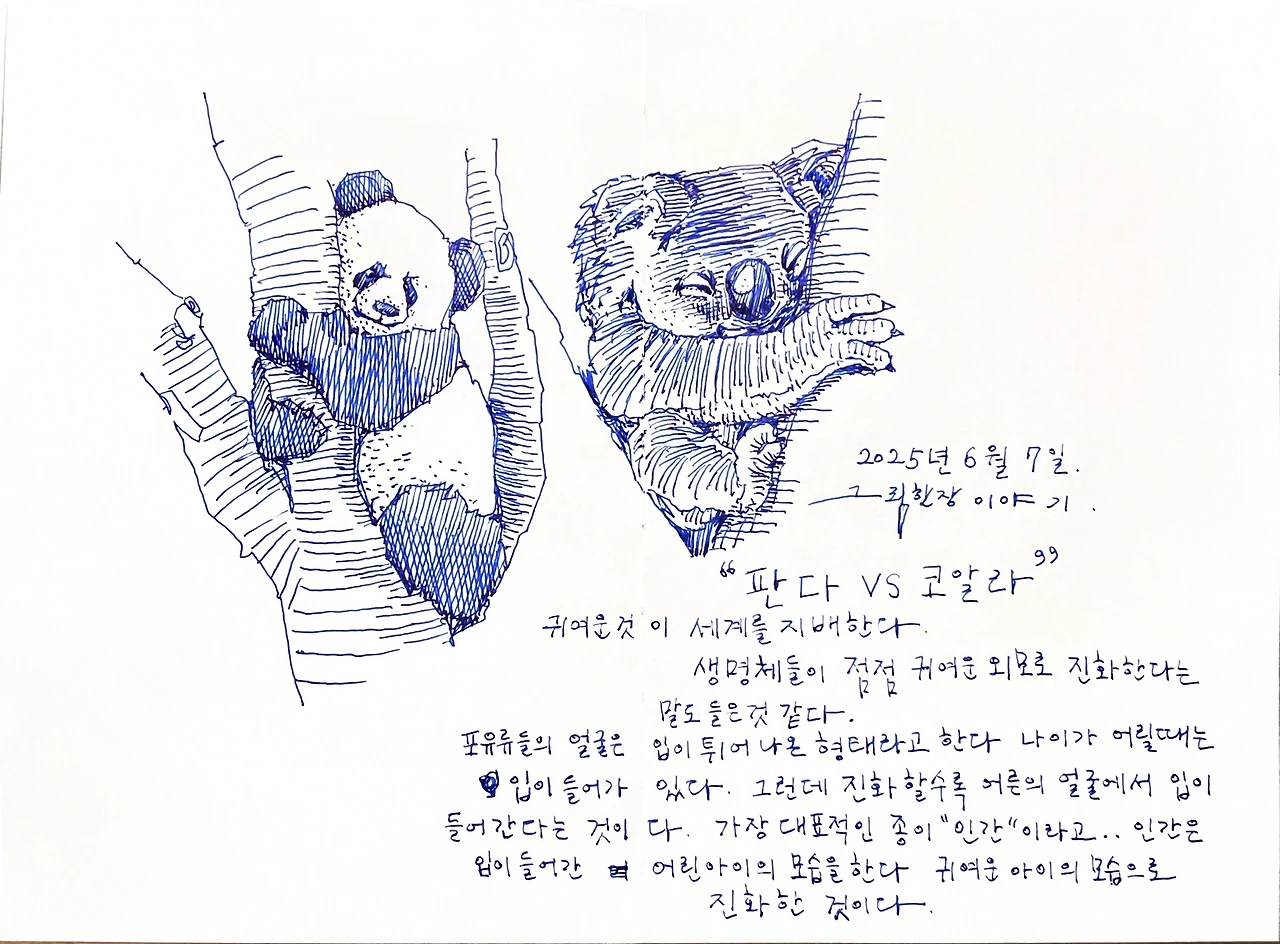 2025년 6월 7일.
그림한장 이야기.
"판다 VS 코알라"
귀여운것이 세계를 지배한다.
생명체들이 점점 귀여운 외모로 진화한다는
말도 들은것 같다.
포유류들의 얼굴은 입이 튀어나온 형태라고 한다 나이가 어릴때는
입이 들어가 있다. 그런데 진화 할수록 어른의 얼굴에서 입이
들어간다는 것이다. 가장 대표적인 종이 "인간"이라고.. 인간은
입이 들어간 어린아이의 모습을 한다 귀여운 아이의 모습으로
진화한 것이다.